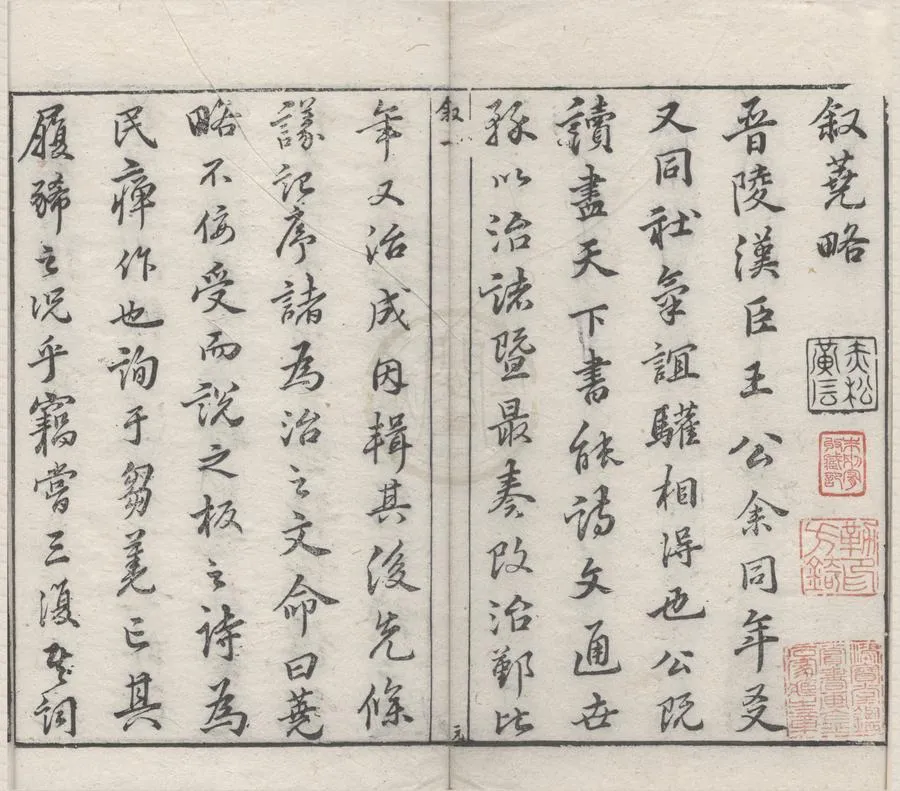 叙蕘略
晋陵漢臣王公余同年友
又同社氣誼驩相得也公既
讀盡天下書能詩文通世
務以治諸暨最奏改治鄞比
叙一
元
年又治成因輯其後先條
議記序諸為治之文命曰蕘
略不佞受而説之板之詩為
民瘅作也詢于芻蕘亡其
履豨之况乎竊嘗三復其詞